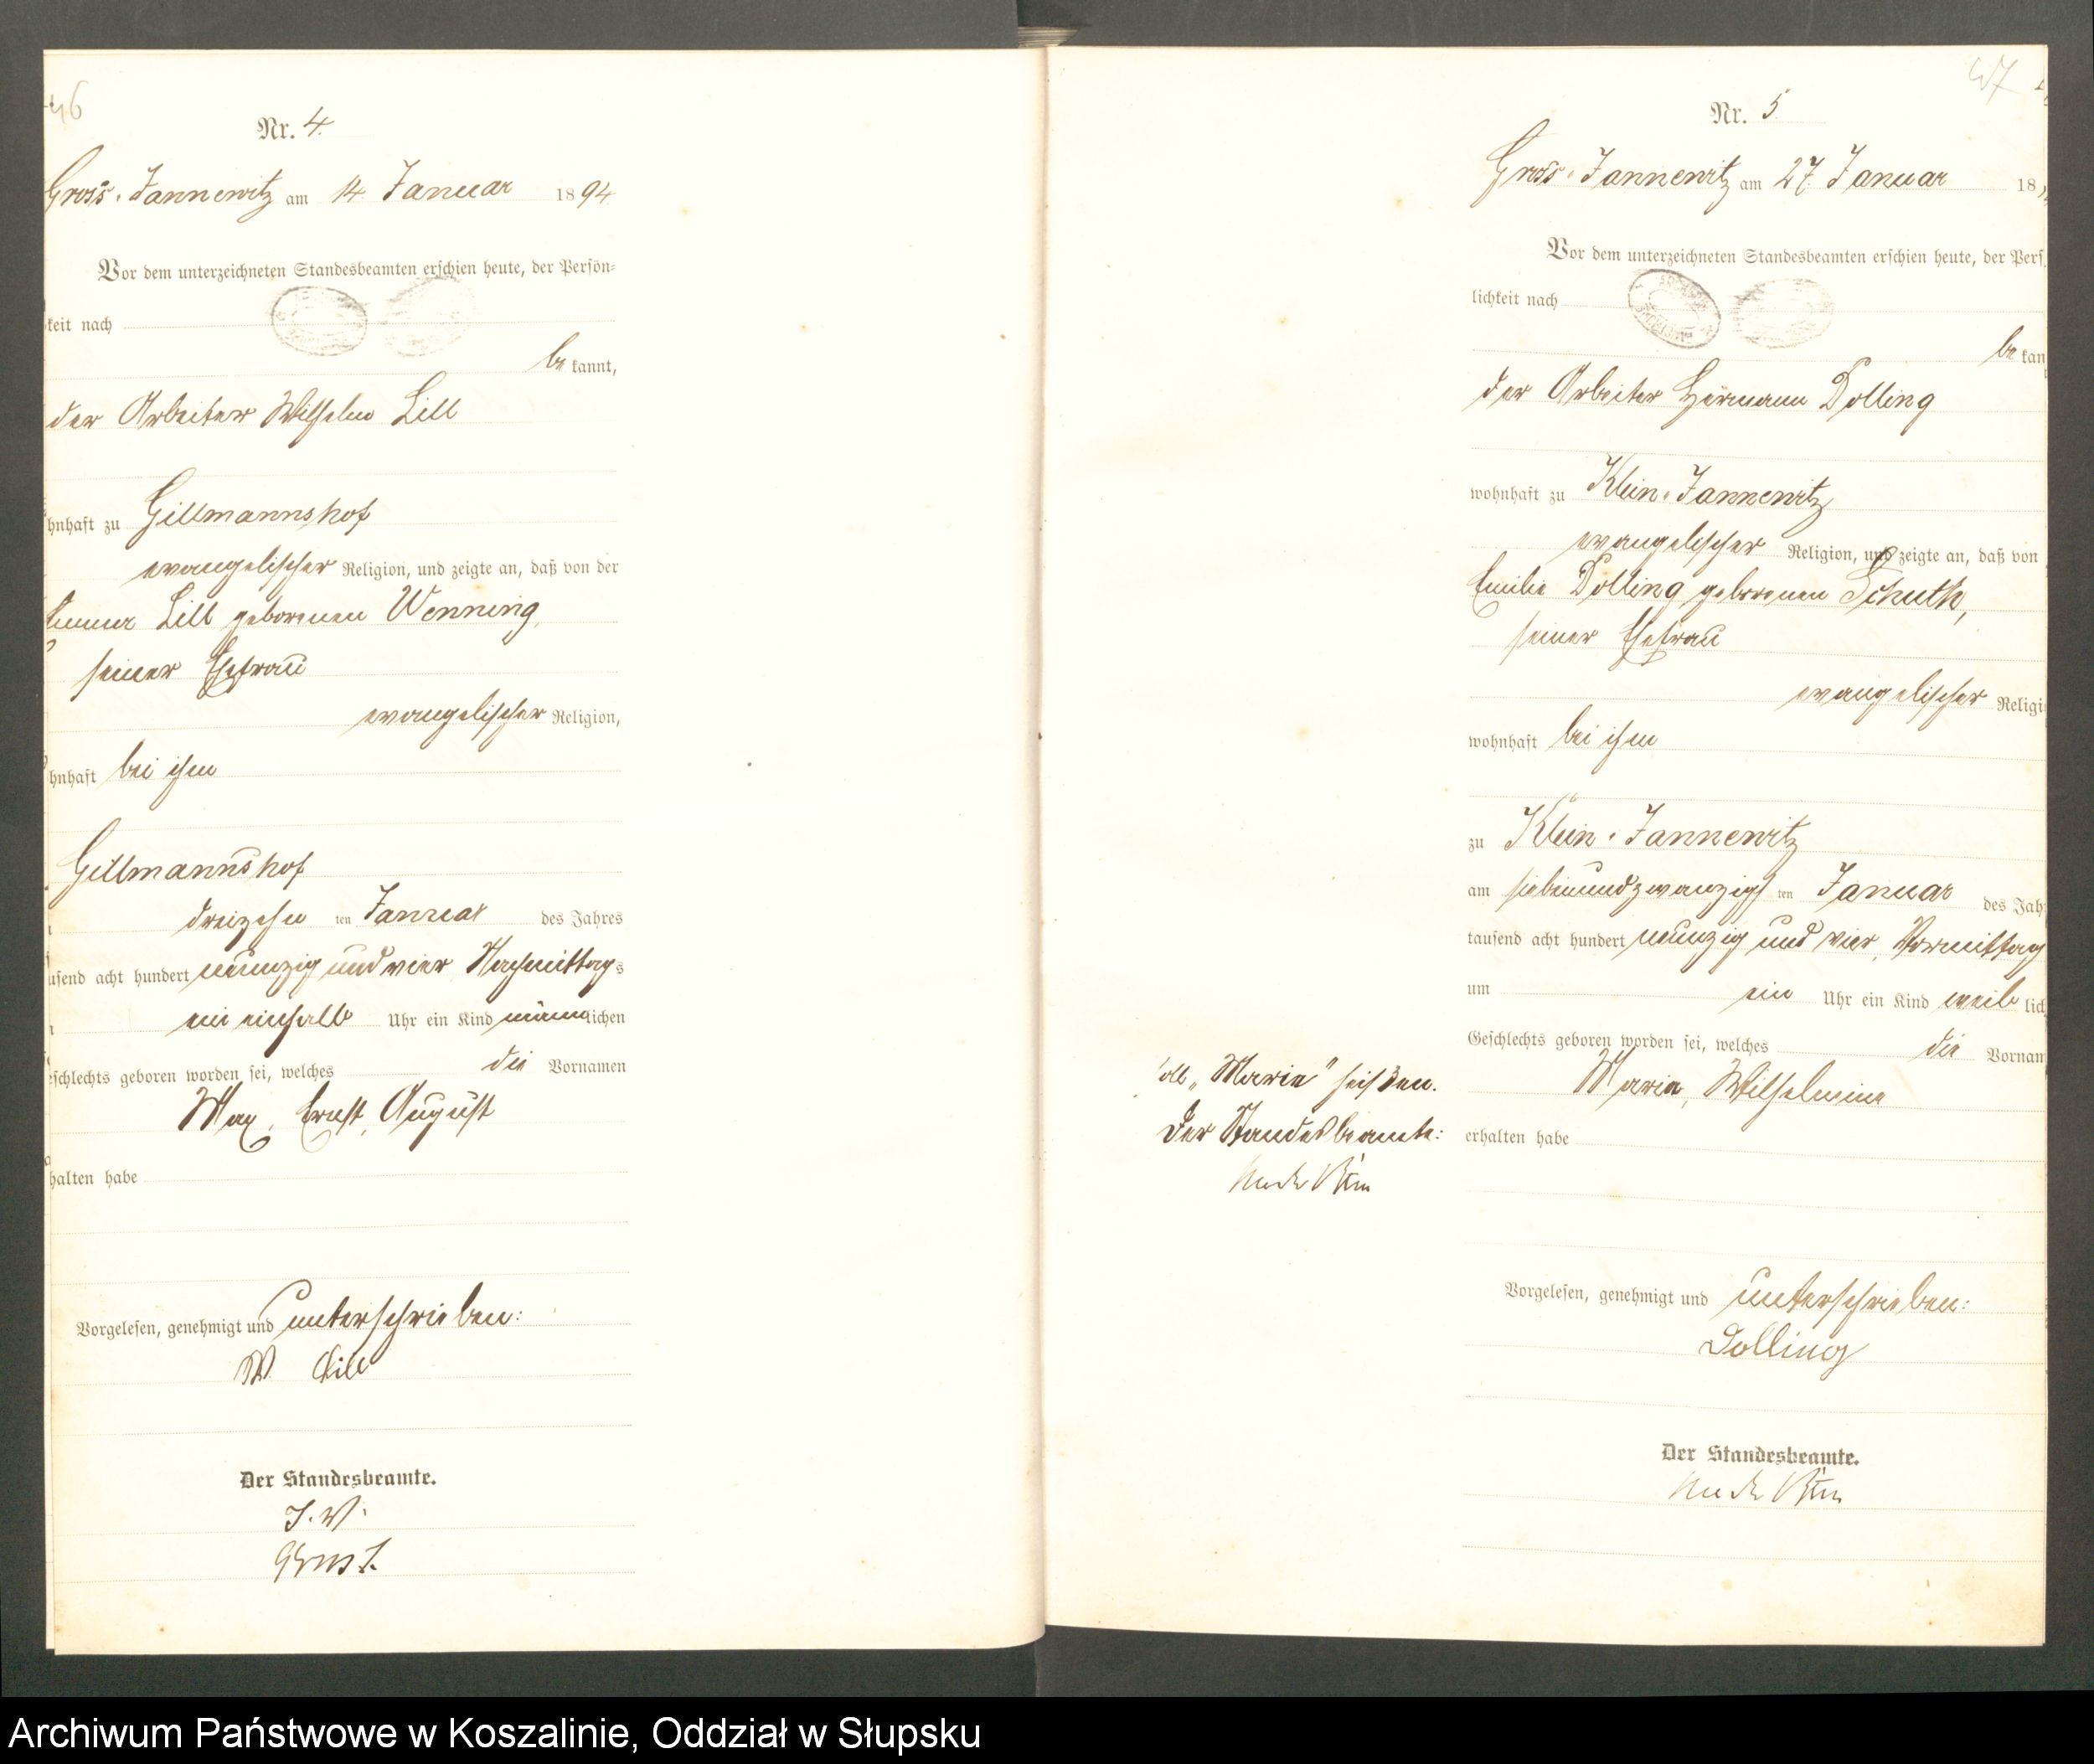 46
Nr. 4.
Gross-Jannewitz am 14. Januar 1894
Vor dem unterzeichneten Standesbeamten erschien heute, der Persön-
keit nach
be kannt,
der Arbeiter Wilhelm Lill
hnhaft zu Gillmannshof
evangelischer Religion, und zeigte an, daß von der
Emma Lill geborenen Wenning,
seiner Ehefrau
evangelischer Religion,
hnhaft bei ihm
Gillmannshof
dreizehn ten Januar des Jahres
usend acht hundert neunzig und vier Nachmittags
um einhalb Uhr ein Kind männlichen
schlechts geboren worden sei, welches die Vornamen
Max, Ernst, August
halten habe
Vorgelesen, genehmigt und unterschrieben:
W Lill
Der Standesbeamte.
J. V.
47
Nr. 5
Gross-Jannewitz am 27. Januar 18
Vor dem unterzeichneten Standesbeamten erschien heute, der Pers
lichkeit nach
be kan
der Arbeiter Hermann Dolling
wohnhaft zu Klein-Jannewitz
evangelischer Religion, und zeigte an, daß von
Emilie Dolling geborenen Schuth,
seiner Ehefrau
evangelischer Religi
wohnhaft bei ihm
zu Klein-Jannewitz
am siebenundzwanzigsten Januar des Jah
tausend acht hundert neunzig und vier, Vormittag
um ein Uhr ein Kind weib lich
Geschlechts geboren worden sei, welches die Vornam
Maria, Wilhelmine
erhalten habe
soll „Marie" heißen.
Der Standesbeamte:
Vorgelesen, genehmigt und unterschrieben:
Dolling
Der Standesbeamte.
Archiwum Państwowe w Koszalinie, Oddział w Słupsku